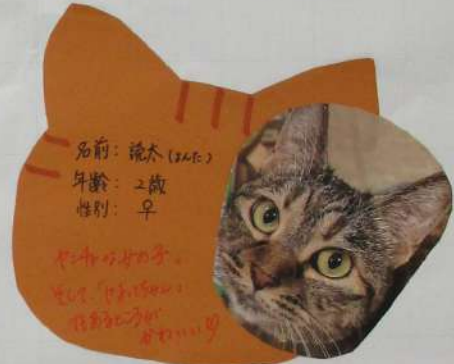 名前: 読太 (よんた)
年齢: 2歳
性別: ♀
ヤンチャな女の子。
そして、
ところが
かわいい♡